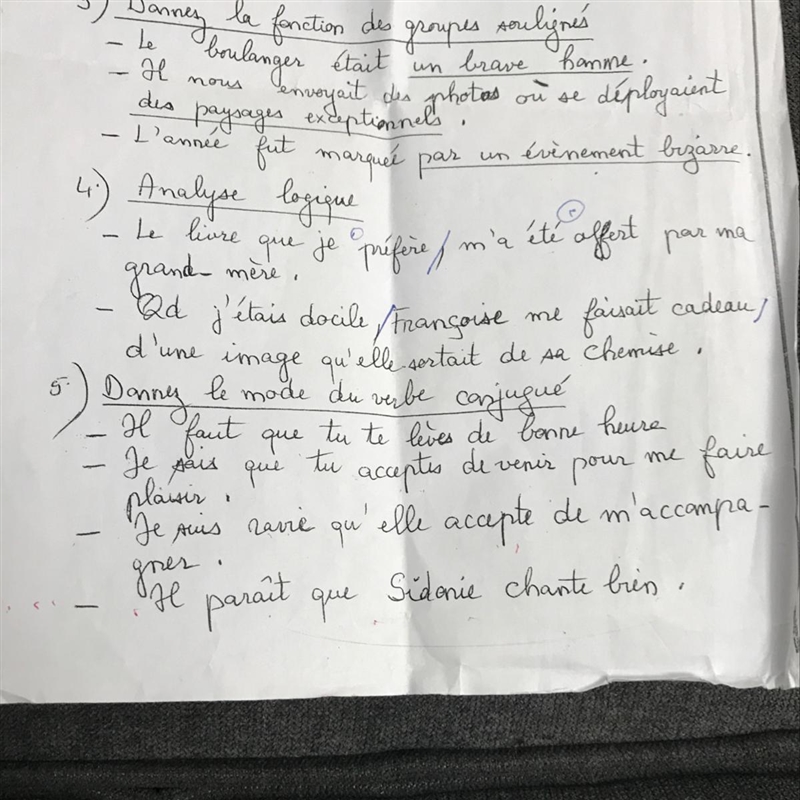 3) Donnez la fonction des groupes soulignés
- Le boulanger était un brave homme.
- Il nous envoyait des photos où se déployaient
des paysages exceptionnels.
- L'année fut marquée par un évènement bizarre.
4) Analyse logique
- Le livre que je préfère/ m'a été offert par ma
grand-mère.
- Qd j'étais docile,/Françoise me faisait cadeau/
d'une image qu'elle sortait de sa chemise.
5) Donnez le mode du verbe conjugué
- Il faut que tu te lèves de bonne heure
- Je sais que tu acceptes de venir pour me faire
plaisir.
- Je suis ravie qu'elle accepte de m'accompa-
gner.
- Il paraît que Sidonie chante bien.